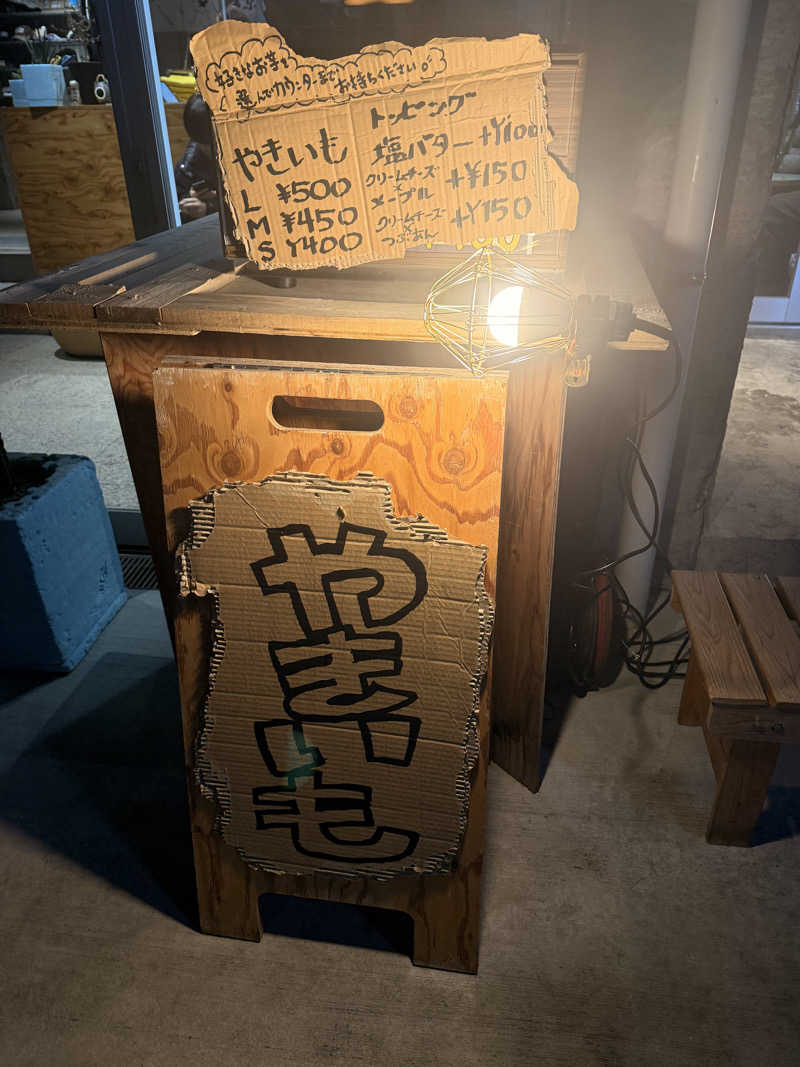 好きなお芋を
選んでカウンターまで お持ちください。
やきいも
L ¥500
M ¥450
S ¥400
トッピング
塩バター +¥100
クリームチーズ
×
メープル +¥150
クリームチーズ
×
つぶあん +¥150
やきいも